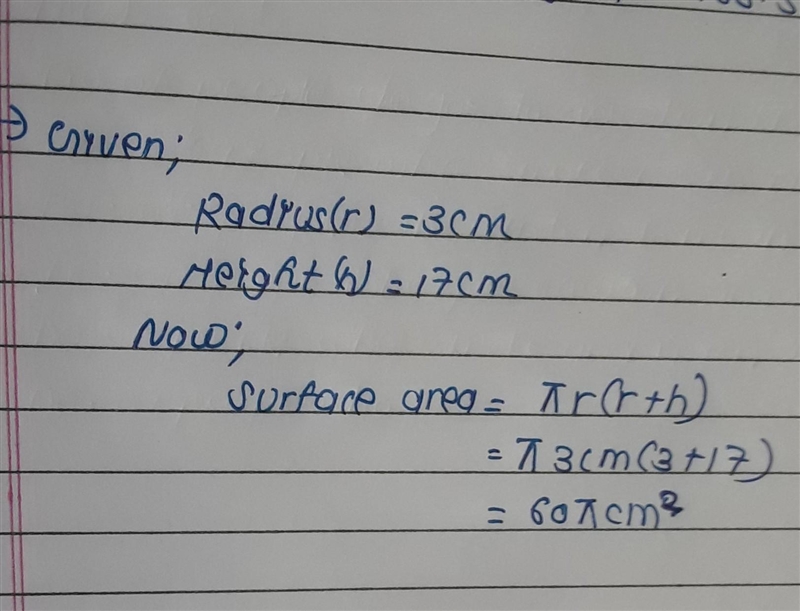 → Given;
Radius(r) = 3cm
Height (h) = 17cm
Now;
Surface area = πr(r+h)
= π3cm(3+17)
= 60πcm²